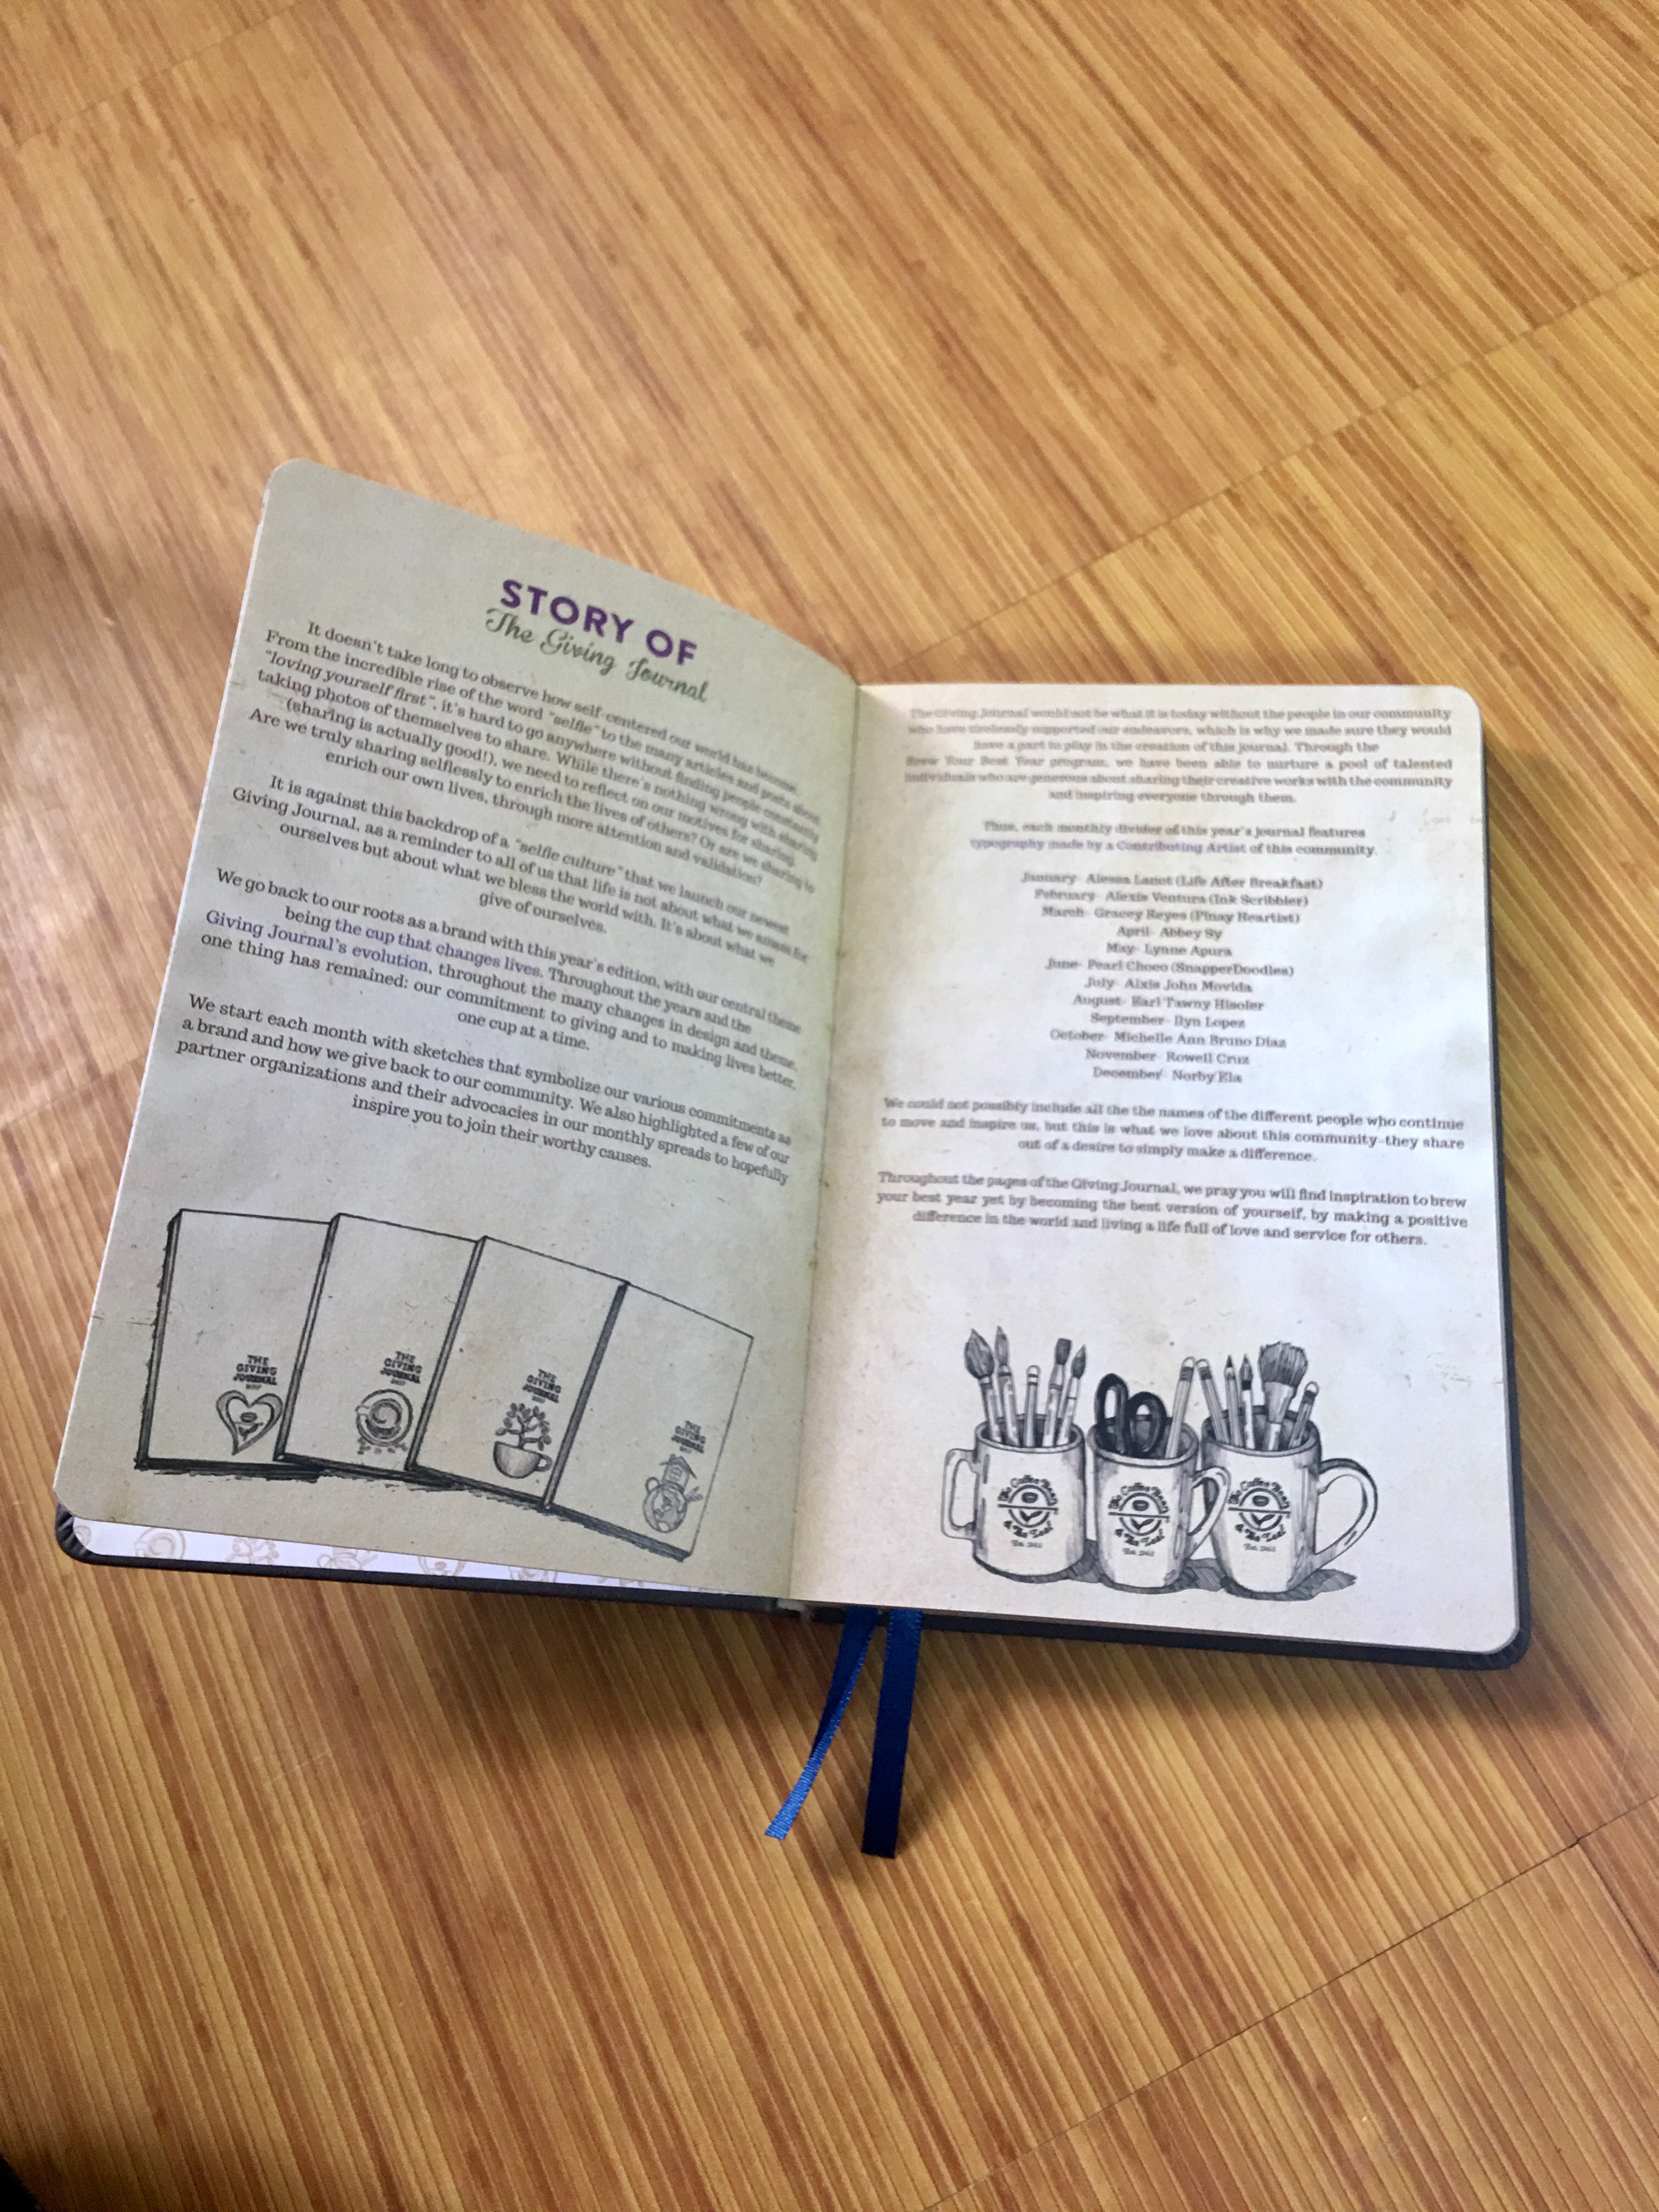 STORY OF
The Giving Journal
It doesn't take long to observe how self-centered our world has become.
From the incredible rise of the word "selfie" to the many articles and posts about
"loving yourself first", it's hard to go anywhere without finding people constantly
taking photos of themselves to share. While there's nothing wrong with sharing
(sharing is actually good!), we need to reflect on our motives for sharing.
Are we truly sharing selflessly to enrich the lives of others? Or are we sharing to
enrich our own lives, through more attention and validation?
It is against this backdrop of a "selfie culture" that we launch our newest
Giving Journal, as a reminder to all of us that life is not about what we amass for
ourselves but about what we bless the world with. It's about what we
give of ourselves.
We go back to our roots as a brand with this year's edition, with our central theme
being the cup that changes lives. Throughout the years and the
Giving Journal's evolution, throughout the many changes in design and theme,
one thing has remained: our commitment to giving and to making lives better,
one cup at a time.
We start each month with sketches that symbolize our various commitments as
a brand and how we give back to our community. We also highlighted a few of our
partner organizations and their advocacies in our monthly spreads to hopefully
inspire you to join their worthy causes.
THE
GIVING
JOURNAL
2017
THE
GIVING
JOURNAL
2017
THE
GIVING
JOURNAL
2017
THE
GIVING
JOURNAL
2017
The Giving Journal would not be what it is today without the people in our community
who have tirelessly supported our endeavors, which is why we made sure they would
have a part to play in the creation of this journal. Through the
Brew Your Best Year program, we have been able to nurture a pool of talented
individuals who are generous about sharing their creative works with the community
and inspiring everyone through them.
Thus, each monthly divider of this year's journal features
typography made by a Contributing Artist of this community.
January- Alessa Lanot (Life After Breakfast)
February- Alexis Ventura (Ink Scribbler)
March- Gracey Reyes (Pinay Heartist)
April- Abbey Sy
May- Lynne Apura
June- Pearl Choco (SnapperDoodles)
July- Alxis John Movida
August- Earl Tawny Hisoler
September- Ilyn Lopez
October- Michelle Ann Bruno Diaz
November- Rowell Cruz
December- Norby Ela
We could not possibly include all the the names of the different people who continue
to move and inspire us, but this is what we love about this community-they share
out of a desire to simply make a difference.
Throughout the pages of the Giving Journal, we pray you will find inspiration to brew
your best year yet by becoming the best version of yourself, by making a positive
difference in the world and living a life full of love and service for others.
The Coffee Bean
& Tea Leaf
The Coffee Bean
& Tea Leaf
The Coffee Bean
& Tea Leaf